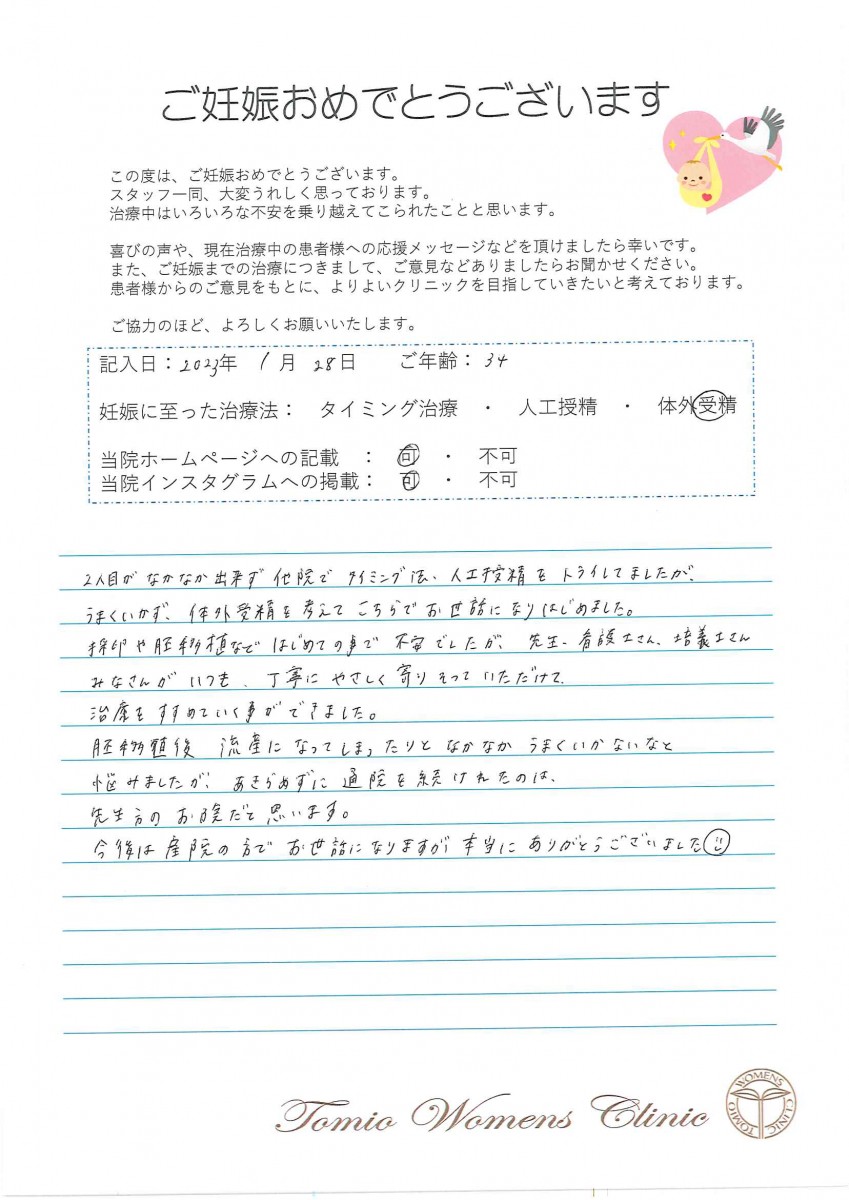 ご妊娠おめでとうございます
この度は、ご妊娠おめでとうございます。
スタッフ一同、大変うれしく思っております。
治療中はいろいろな不安を乗り越えてこられたことと思います。
喜びの声や、現在治療中の患者様への応援メッセージなどを頂けましたら幸いです。
また、ご妊娠までの治療につきまして、ご意見などありましたらお聞かせください。
患者様からのご意見をもとに、よりよいクリニックを目指していきたいと考えております。
ご協力のほど、よろしくお願いいたします。
記入日：2023年 1月 28日 ご年齢：34
妊娠に至った治療法： タイミング治療 ・ 人工授精 ・ 体外受精
当院ホームページへの記載 ： 可 ・ 不可
当院インスタグラムへの掲載： 可 ・ 不可
2人目がなかなか出来ず 他院で タイミング法、人工授精を トライしてましたが、
うまくいかず、体外受精を考えて こちらで お世話になりはじめました。
採卵や胚移植など はじめての事で 不安でしたが、先生、看護士さん、培養士さん
みなさんが いつも、丁寧に やさしく 寄りそって いただけて、
治療を すすめていく事が できました。
胚移植後 流産に なってしまったりと なかなか うまくいかないなと
悩みましたが、あきらめずに 通院を 続けれたのは、
先生方の お陰だと 思います。
今後は 産院の方で お世話になりますが 本当に ありがとうございました
Tomio Womens Clinic
TOMIO WOMENS CLINIC